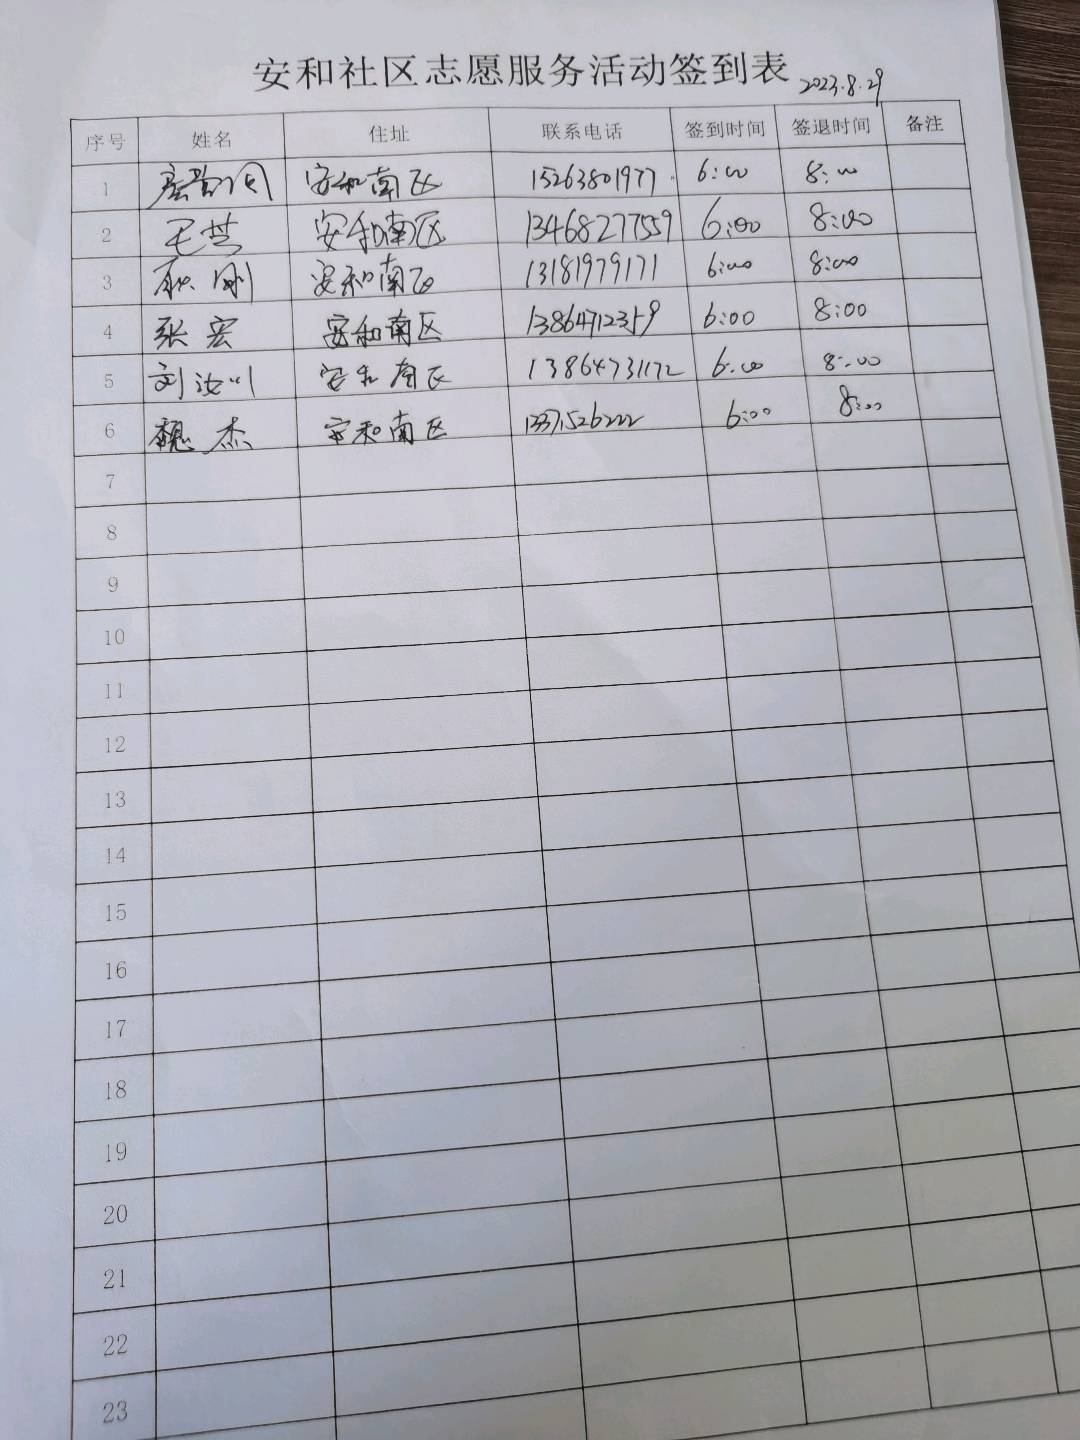 安和社区志愿服务活动签到表 2023.8.29
序号 姓名 住址 联系电话 签到时间 签退时间 备注
1 安和南区 15263801977 6:00 8:00
2 王芸 安和南区 13468277559 6:00 8:00
3 耿刚 安和南区 13181979171 6:00 8:00
4 张宏 安和南区 13864712359 6:00 8:00
5 刘汝川 安和南区 13864731172 6:00 8:00
6 魏杰 安和南区 13371526222 6:00 8:00
7
8
9
10
11
12
13
14
15
16
17
18
19
20
21
22
23